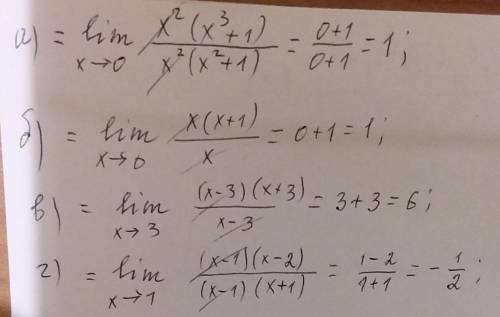 а) = lim x→0 x²(x³+1) / x²(x²+1) = 0+1 / 0+1 = 1;
б) = lim x→0 x(x+1) / x = 0+1 = 1;
в) = lim x→3 (x-3)(x+3) / x-3 = 3+3 = 6;
г) = lim x→1 (x-1)(x-2) / (x-1)(x+1) = 1-2 / 1+1 = -1/2;